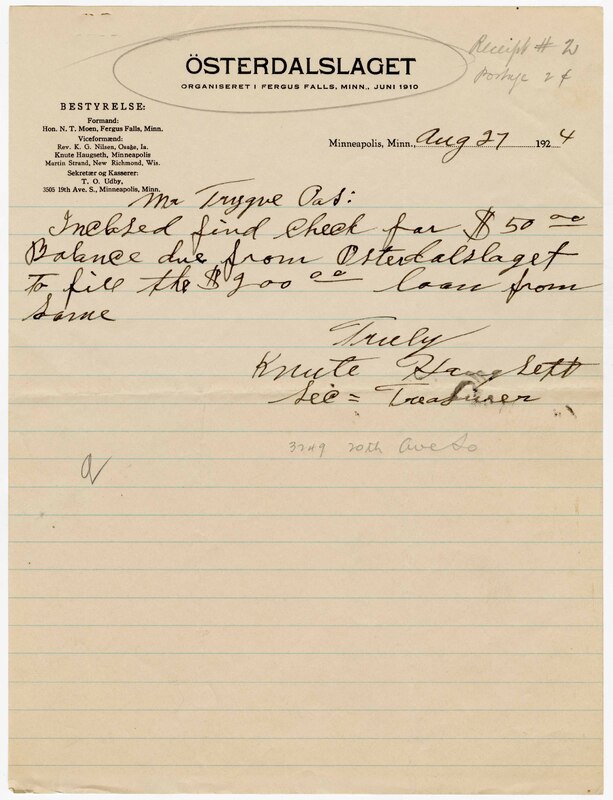 ÖSTERDALSLAGET
ORGANISERET I FERGUS FALLS, MINN., JUNI 1910
Receipt # 2
Postage 2 ¢
BESTYRELSE:
Formand:
Hon. N. T. Moen, Fergus Falls, Minn.
Viceformænd:
Rev. K. G. Nilsen, Osage, Ia.
Knute Haugseth, Minneapolis
Martin Strand, New Richmond, Wis.
Sekretær og Kasserer:
T. O. Udby,
3505 19th Ave. S., Minneapolis, Minn.
Minneapolis, Minn., Aug 27 1924
Mr Trygve Oas:
Inclosed find check for $ 50 00
Balance due from Osterdalslaget
To fill the $200 00 loan from
Same
Truly
Knute Haugseth
Sec = Treasurer
3249 20th Ave So